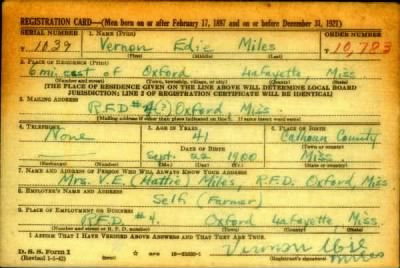 REGISTRATION CARD—(Men born on or after February 17, 1897 and on or before December 31, 1921)
SERIAL NUMBER 1. NAME (Print) ORDER NUMBER
T 1039 Vernon Edie Miles 10,783
(First) (Middle) (Last)
2. PLACE OF RESIDENCE (Print)
6 mi. east of Oxford Lafayette, Miss
(Number and street) (Town, township, village, or city) (County) (State)
[THE PLACE OF RESIDENCE GIVEN ON THE LINE ABOVE WILL DETERMINE LOCAL BOARD
JURISDICTION; LINE 2 OF REGISTRATION CERTIFICATE WILL BE IDENTICAL]
3. MAILING ADDRESS
R.F.D. #4(?) Oxford Miss.
(Mailing address if other than place indicated on line 2. If same insert word same)
4. TELEPHONE 5. AGE IN YEARS 6. PLACE OF BIRTH
None 41 Calhoun County
DATE OF BIRTH (Town or county)
Sept. 22 1900 Miss
(Exchange) (Number) (Mo.) (Day) (Yr.) (State or country)
7. NAME AND ADDRESS OF PERSON WHO WILL ALWAYS KNOW YOUR ADDRESS
Mrs. V.E. (Hattie) Miles R.F.D. Oxford, Miss
8. EMPLOYER'S NAME AND ADDRESS
Self (Farmer)
9. PLACE OF EMPLOYMENT OR BUSINESS
R.F.D. #4. Oxford Lafayette, Miss
(Number and street or R. F. D. number) (Town) (County) (State)
I AFFIRM THAT I HAVE VERIFIED ABOVE ANSWERS AND THAT THEY ARE TRUE.
D. S. S. Form 1 Vernon Edie
(Revised 1-1-42) (over) Miles
(Registrant's signature)